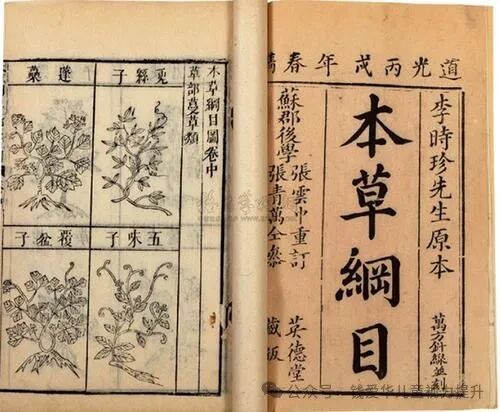 道光丙戌年春鐫
李時珍先生原本
萬方針線並刻
本草綱目
蘇郡後學
張雲中重訂
張青萬仝參
英德堂
藏板
本草綱目圖卷中
草部蔓草類
兎絲子
蓬蘽
五味子
覆盆子
公众号·钱爱华儿童视力提升